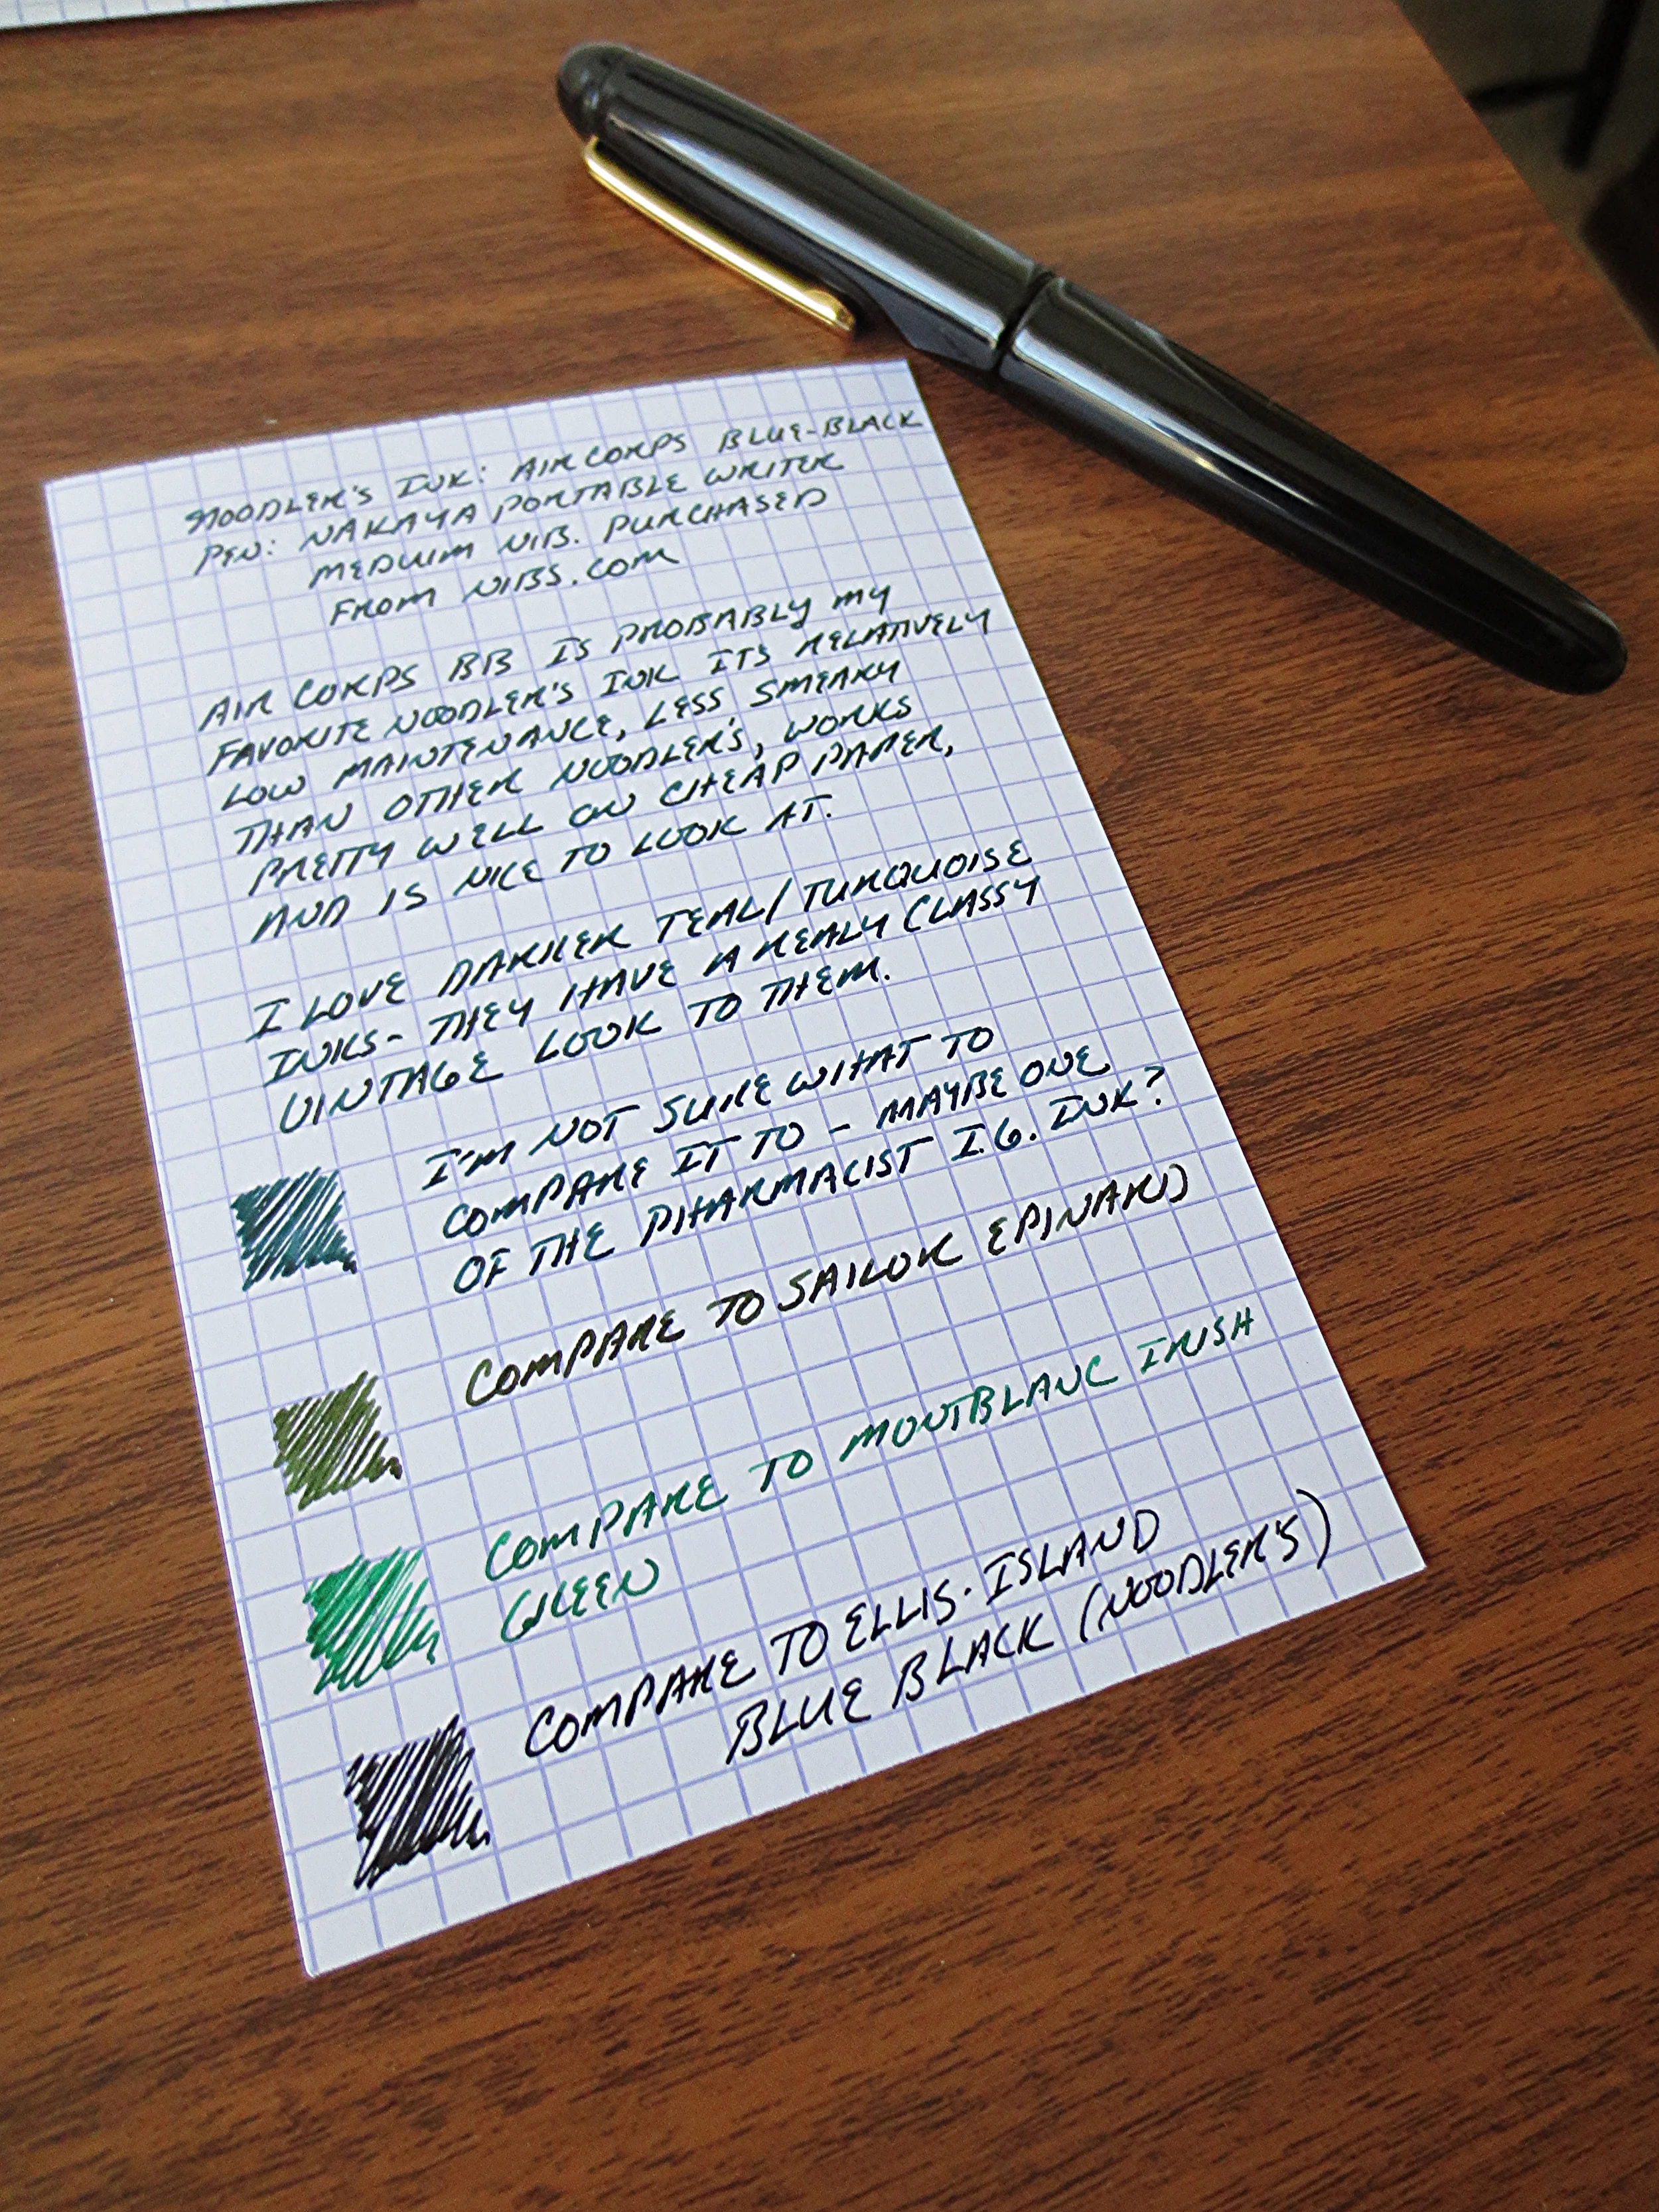 NOODLER'S INK: AIR CORPS BLUE-BLACK
PEN: NAKAYA PORTABLE WRITER
MEDIUIM NIB. PURCHASED
FROM NIBS.COM
AIR CORPS BB IS PROBABLY MY
FAVORITE NOODLER'S INK ITS RELATIVELY
LOW MAINTENANCE, LESS SMEARY
THAN OTHER NOODLER'S, WORKS
PRETTY WELL ON CHEAP PAPER,
AND IS NICE TO LOOK AT.
I LOVE DARKER TEAL/TURQUOISE
INKS- THEY HAVE A REALY CLASSY
VINTAGE LOOK TO THEM.
I'M NOT SURE WHAT TO
COMPARE IT TO - MAYBE ONE
OF THE PHARMACIST I.G. INK?
COMPARE TO SAILOR EPINARD
COMPARE TO MONTBLANC IRISH
GREEN
COMPARE TO ELLIS.ISLAND
BLUE BLACK (NOODLER'S)